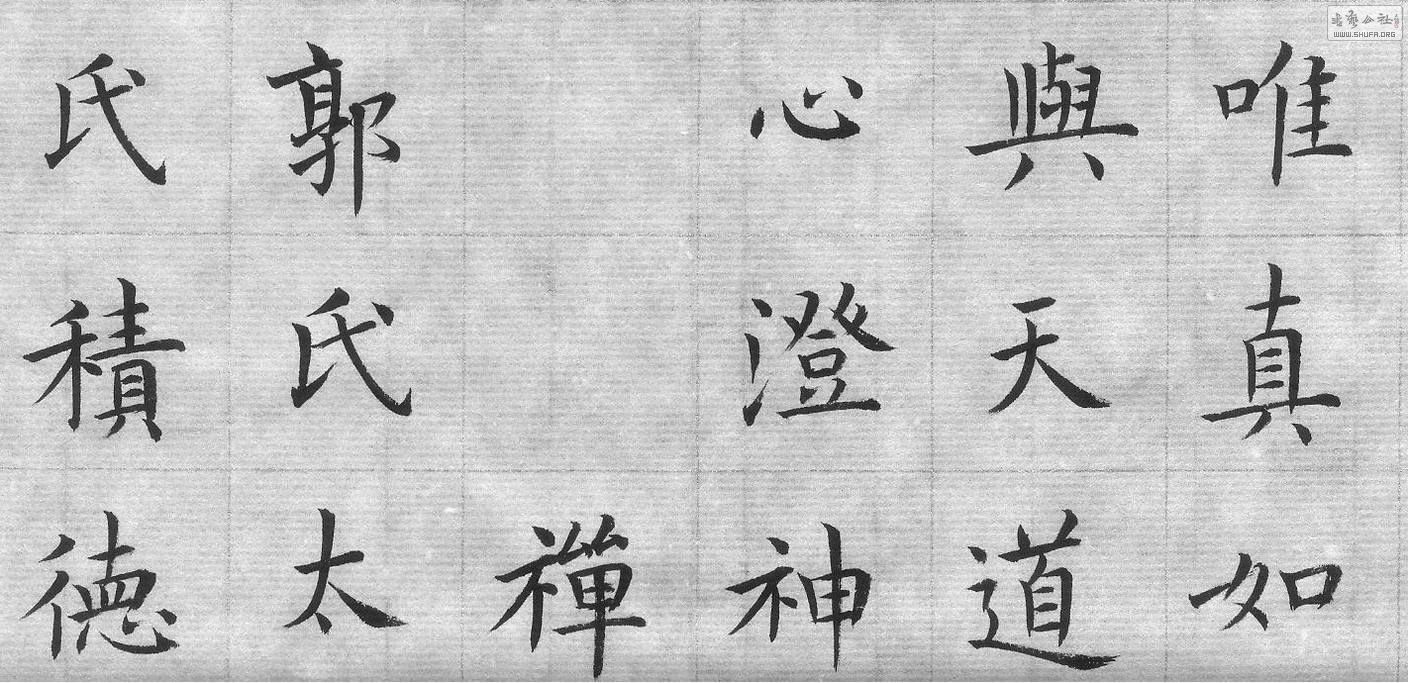 唯真如
與天道
心澄神
禪
郭氏太
氏積德
書藝公社
WWW.SHUFA.ORG